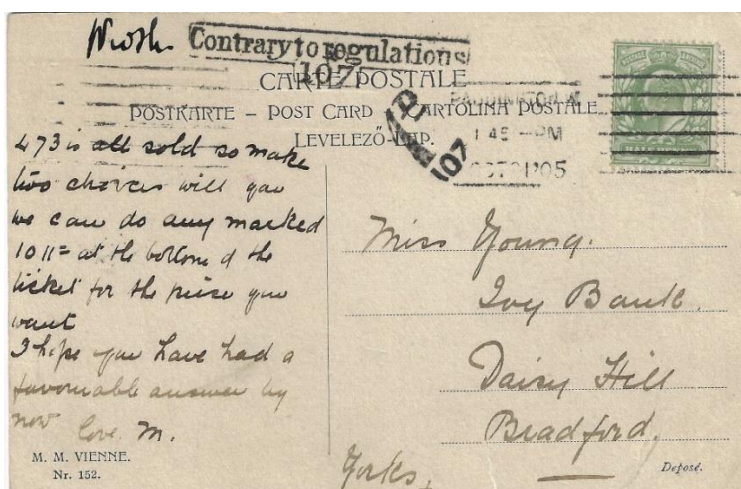 Contrary to regulations
107
CARTE POSTALE
POSTKARTE – POST CARD – CARTOLINA POSTALE
LEVELEZŐ-LAP.
PADDINGTON. W
1 45 PM
OCT 21 05
107
473 is all sold so make
two choices will you
we can do any marked
10 11= at the bottom of the
ticket for the price you
want
I hope you have had a
favourable answer by
now love M.
Miss Young.
Ivy Bank.
Daisy Hill
Bradford,
Yorks,
M. M. VIENNE.
Nr. 152.
Deposé.